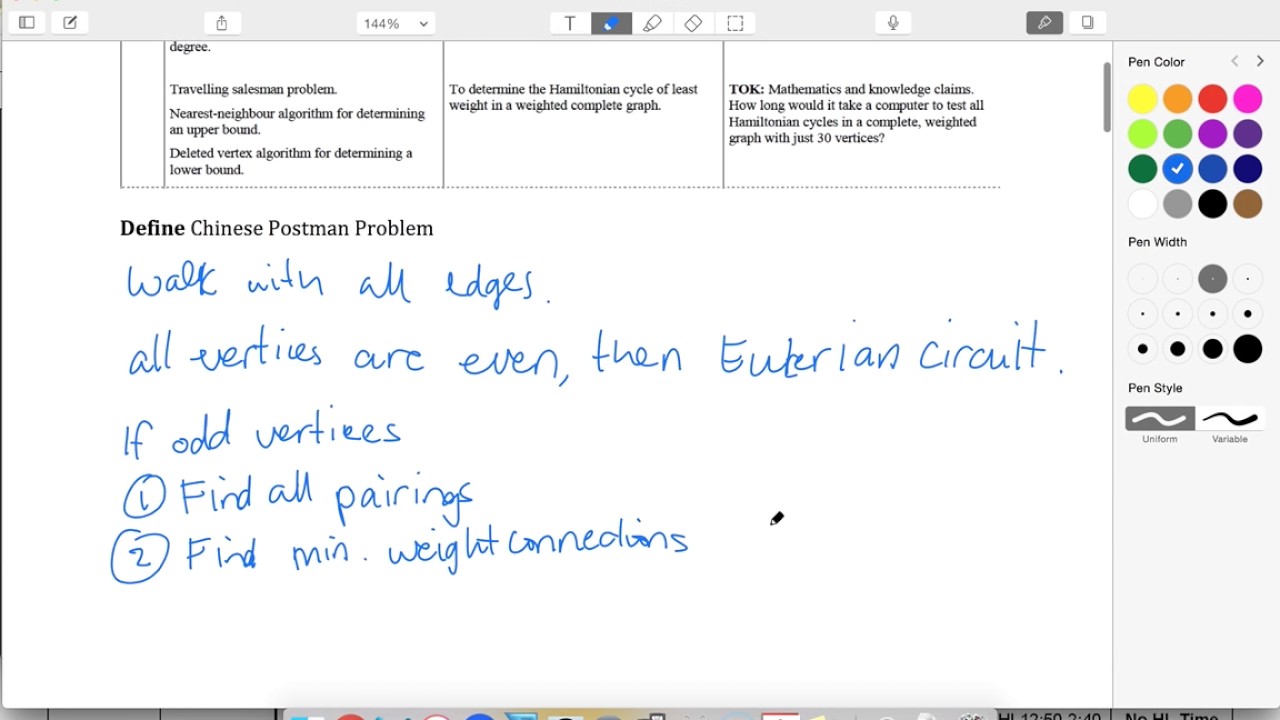 144%
T
degree.
Travelling salesman problem.
Nearest-neighbour algorithm for determining
an upper bound.
Deleted vertex algorithm for determining a
lower bound.
To determine the Hamiltonian cycle of least
weight in a weighted complete graph.
TOK: Mathematics and knowledge claims.
How long would it take a computer to test all
Hamiltonian cycles in a complete, weighted
graph with just 30 vertices?
Define Chinese Postman Problem
Walk with all edges.
all vertices are even, then Eulerian Circuit.
If odd vertices
① Find all pairings
② Find min. weight connections
Pen Color
Pen Width
Pen Style
Uniform
Variable
HL 12:50 2:40
No HL Time